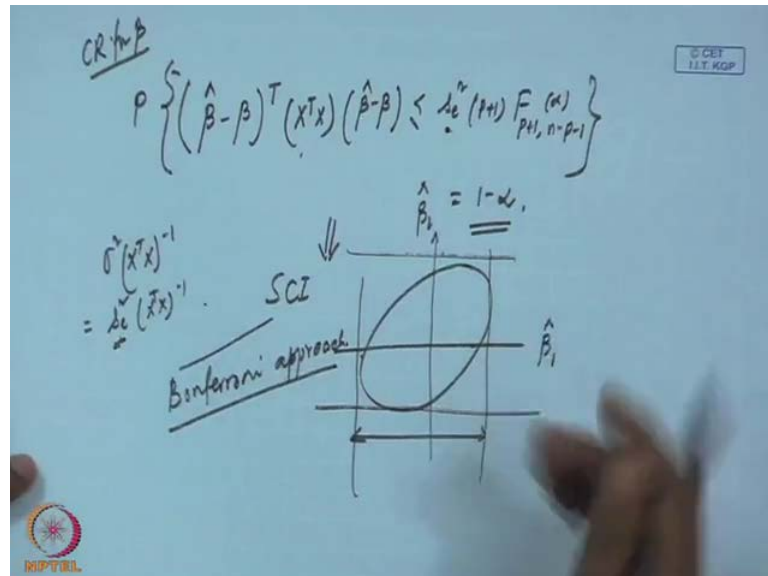 CR for β
© CET
I.I.T. KGP
P { (β̂ - β)ᵀ (XᵀX) (β̂ - β) ≤ se² (p+1) F (α) p+1, n-p-1 }
= 1-α.
β̂₂
σ² (XᵀX)⁻¹
= se² (XᵀX)⁻¹.
SCI
Bonferroni approach
β̂₁
NPTEL